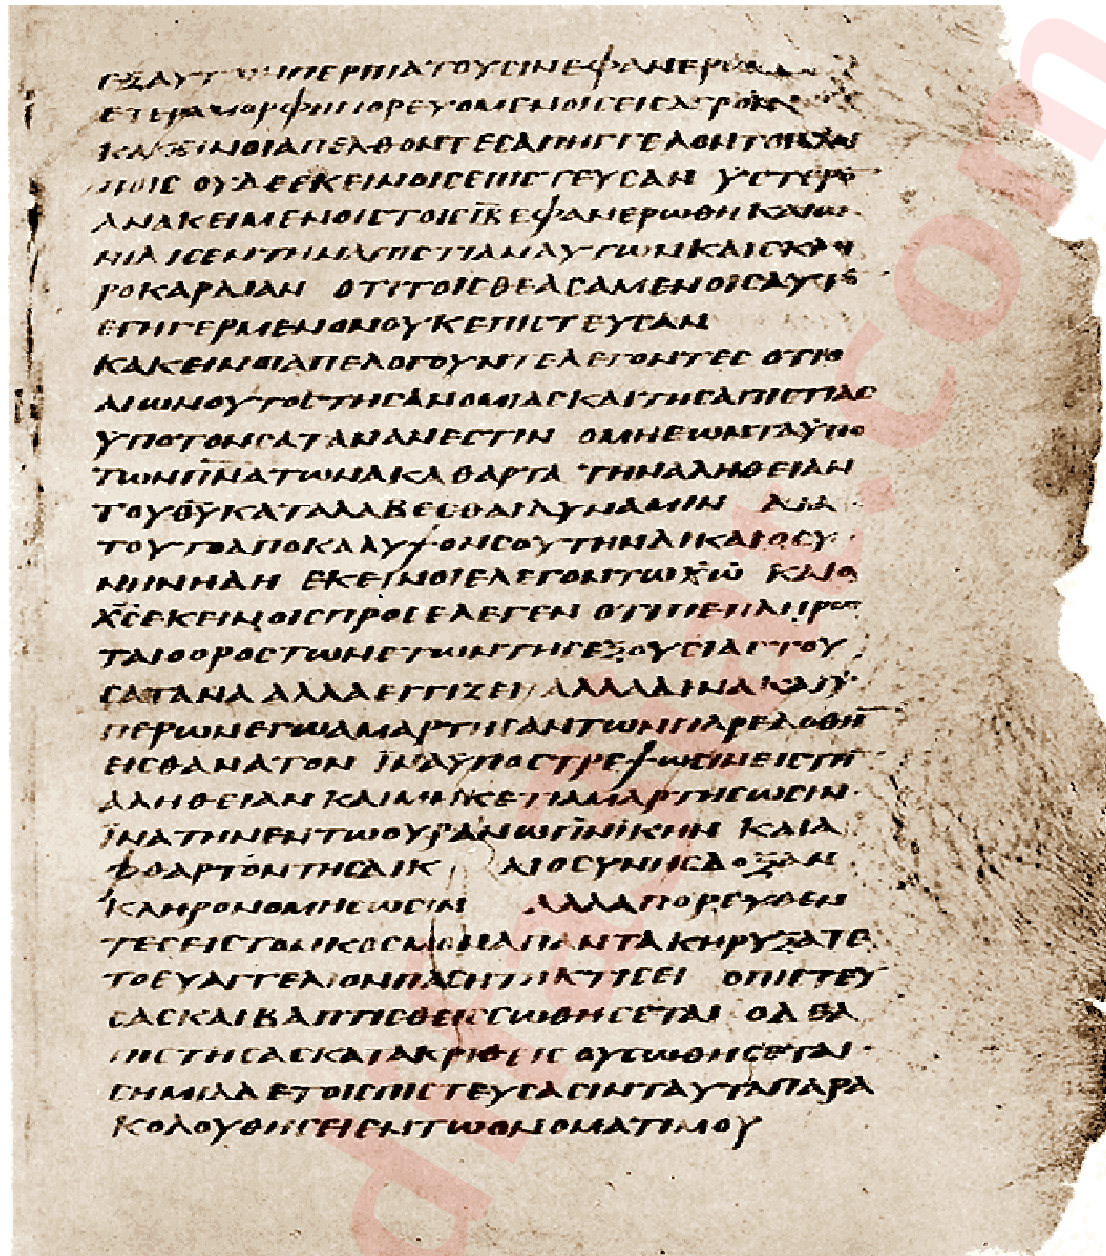 ΕΞΑΥΤΩΝΠΕΡΙΠΑΤΟΥϹΙΝΕΦΑΝΕΡΩ
ΕΤΕΡΑΜΟΡΦΗΠΟΡΕΥΟΜΕΝΟΙϹΕΙϹΑΓΡΟΝ
ΚΑΚΕΙΝΟΙΑΠΕΛΘΟΝΤΕϹΑΠΗΓΓΕΛΟΝΤΟΙϹΛΟΙ
ΠΟΙϹ ΟΥΔΕΕΚΕΙΝΟΙϹΕΠΙϹΤΕΥϹΑΝ ΥϹΤΕΡΟ̅
ΑΝΑΚΕΙΜΕΝΟΙϹΤΟΙϹΙ̅Α̅ΕΦΑΝΕΡΩΘΗΚΑΙΩ
ΝΙΔΙϹΕΝΤΗΝΑΠΙϹΤΙΑΝΑΥΤΩΝΚΑΙϹΚΛΗ
ΡΟΚΑΡΔΙΑΝ ΟΤΙΤΟΙϹΘΕΑϹΑΜΕΝΟΙϹΑΥΤΟ̅
ΕΓΗΓΕΡΜΕΝΟΝΟΥΚΕΠΙϹΤΕΥϹΑΝ
ΚΑΚΕΙΝΟΙΑΠΕΛΟΓΟΥΝΤΕΛΕΓΟΝΤΕϹ ΟΤΙΟ
ΑΙΩΝΟΥΤΟϹΤΗϹΑΝΟΜΙΑϹΚΑΙΤΗϹΑΠΙϹΤΙΑϹ
ΥΠΟΤΟΝϹΑΤΑΝΑΝΕϹΤΙΝ ΟΜΗΕΩΝΤΑΥΠΟ
ΤΩΝΠ̅Ν̅ΑΤΩΝΑΚΑΘΑΡΤΑ ΤΗΝΑΛΗΘΕΙΑΝ
ΤΟΥΘ̅Υ̅ΚΑΤΑΛΑΒΕϹΘΑΙΔΥΝΑΜΙΝ ΔΙΑ
ΤΟΥΤΟΑΠΟΚΑΛΥΨΟΝϹΟΥΤΗΝΔΙΚΑΙΟϹΥ
ΝΗΝΗΔΗ ΕΚΕΙΝΟΙΕΛΕΓΟΝΤΩΧ̅Ω̅ ΚΑΙΟ
Χ̅Ϲ̅ΕΚΕΙΝΟΙϹΠΡΟϹΕΛΕΓΕΝ ΟΤΙΠΕΠΛΗΡΩ
ΤΑΙΟΟΡΟϹΤΩΝΕΤΩΝΤΗϹΕΞΟΥϹΙΑϹΤΟΥ
ϹΑΤΑΝΑ ΑΛΛΑΕΓΓΙΖΕΙ ΑΛΛΑΔΙΝΑΚΑΙΥ
ΠΕΡΩΝΕΓΩΑΜΑΡΤΗϹΑΝΤΩΝΠΑΡΕΔΟΘΗ̅
ΕΙϹΘΑΝΑΤΟΝ ΙΝΑΥΠΟϹΤΡΕΨΩϹΙΝΕΙϹΤΗ̅
ΑΛΗΘΕΙΑΝΚΑΙΜΗΚΕΤΙΑΜΑΡΤΗϹΩϹΙΝ
ΙΝΑΤΗΝΕΝΤΩΟΥΡΑΝΩΠ̅Ν̅ΙΚΗΝ ΚΑΙΑ
ΦΘΑΡΤΟΝΤΗϹΔΙΚ ΑΙΟϹΥΝΗϹΔΟΞΑΝ
ΚΛΗΡΟΝΟΜΗϹΩϹΙΝ ΑΛΛΑΠΟΡΕΥΘΕΝ
ΤΕϹΕΙϹΤΟΝΚΟϹΜΟΝΑΠΑΝΤΑΚΗΡΥΞΑΤΕ
ΤΟΕΥΑΓΓΕΛΙΟΝΠΑϹΗΤΗΚΤΙϹΕΙ ΟΠΙϹΤΕΥ
ϹΑϹΚΑΙΒΑΠΤΙϹΘΕΙϹϹΩΘΗϹΕΤΑΙ ΟΔΕΑ
ΠΙϹΤΗϹΑϹΚΑΤΑΚΡΙΘΕΙϹ ΟΥϹΩΘΗϹΕΤΑΙ
ϹΗΜΙΑΔΕΤΟΙϹΠΙϹΤΕΥϹΑϹΙΝΤΑΥΤΑΠΑΡΑ
ΚΟΛΟΥΘΗϹΕΙΕΝΤΩΟΝΟΜΑΤΙΜΟΥ